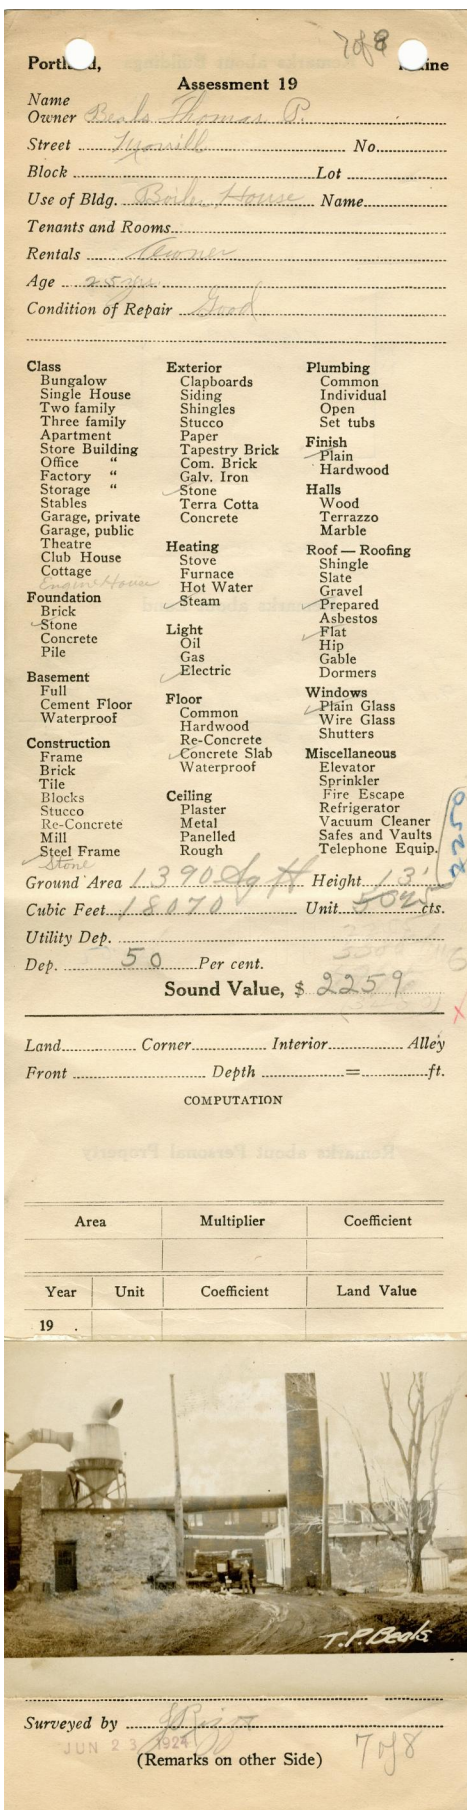 7 of 8
Portland, Maine
Assessment 19
Name
Owner Beals Thomas P.
Street Morrill No.
Block Lot
Use of Bldg. Boiler House Name
Tenants and Rooms
Rentals Owner
Age 25 yrs
Condition of Repair Good
Class
Bungalow
Single House
Two family
Three family
Apartment
Store Building
Office "
Factory "
Storage "
Stables
Garage, private
Garage, public
Theatre
Club House
Cottage
Engine House
Foundation
Brick
Stone
Concrete
Pile
Basement
Full
Cement Floor
Waterproof
Construction
Frame
Brick
Tile
Blocks
Stucco
Re-Concrete
Mill
Steel Frame
Stone
Exterior
Clapboards
Siding
Shingles
Stucco
Paper
Tapestry Brick
Com. Brick
Galv. Iron
Stone
Terra Cotta
Concrete
Heating
Stove
Furnace
Hot Water
Steam
Light
Oil
Gas
Electric
Floor
Common
Hardwood
Re-Concrete
Concrete Slab
Waterproof
Ceiling
Plaster
Metal
Panelled
Rough
Plumbing
Common
Individual
Open
Set tubs
Finish
Plain
Hardwood
Halls
Wood
Terrazzo
Marble
Roof — Roofing
Shingle
Slate
Gravel
Prepared
Asbestos
Flat
Hip
Gable
Dormers
Windows
Plain Glass
Wire Glass
Shutters
Miscellaneous
Elevator
Sprinkler
Fire Escape
Refrigerator
Vacuum Cleaner
Safes and Vaults
Telephone Equip.
Ground Area 1390 Sq ft Height 13'
Cubic Feet 18070 Unit cts.
Utility Dep.
Dep. 50 Per cent.
Sound Value, $ 2259
Land Corner Interior Alley
Front Depth = ft.
COMPUTATION
Area Multiplier Coefficient
Year Unit Coefficient Land Value
19
T.P. Beals
Surveyed by
JUN 23 1924
(Remarks on other Side)
7 of 8